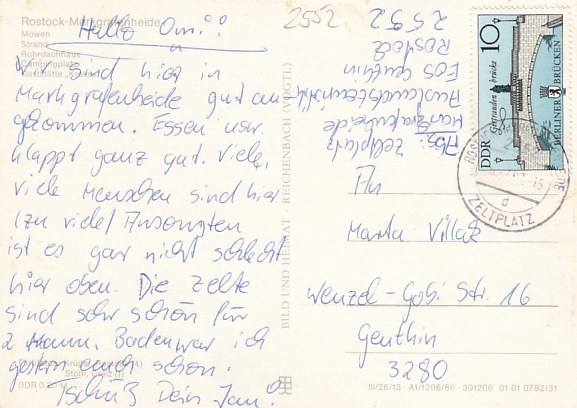 Rostock-Markgrafenheide
Möwen
Strand
Rohrdachhaus
Campingplatz
Gaststätte
Hallo Omi!
Wir sind hier in
Markgrafenheide gut an
gekommen. Essen usw.
klappt ganz gut. Viele,
viele Menschen sind hier
(zu viele) Ansonsten
ist es gar nicht schlecht
hier oben. Die Zelte
sind sehr schön für
2 Mann. Baden war ich
gestern auch schon.
Tschüß Dein Jan!
DDR 0,20 M
BILD UND HEIMAT · REICHENBACH (VOGTL)
2552
Abs: Zeltplatz
Markgrafenheide
EOS Genthin
Rostock
2552
10
DDR
Gertraudenbrücke
BERLINER BRÜCKEN
ZELTPLATZ
d
An
Marta Villatz
Wenzel-Gobi Str. 16
Genthin
3280
III/26/13 · A1/1206/86 · 301206 01 01 0782/31